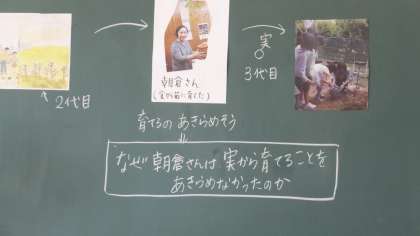 ↑2代目
朝倉さん
実
3代目
育てるの あきらめそう
なぜ 朝倉さんは 実から育てることを
あきらめなかったのか